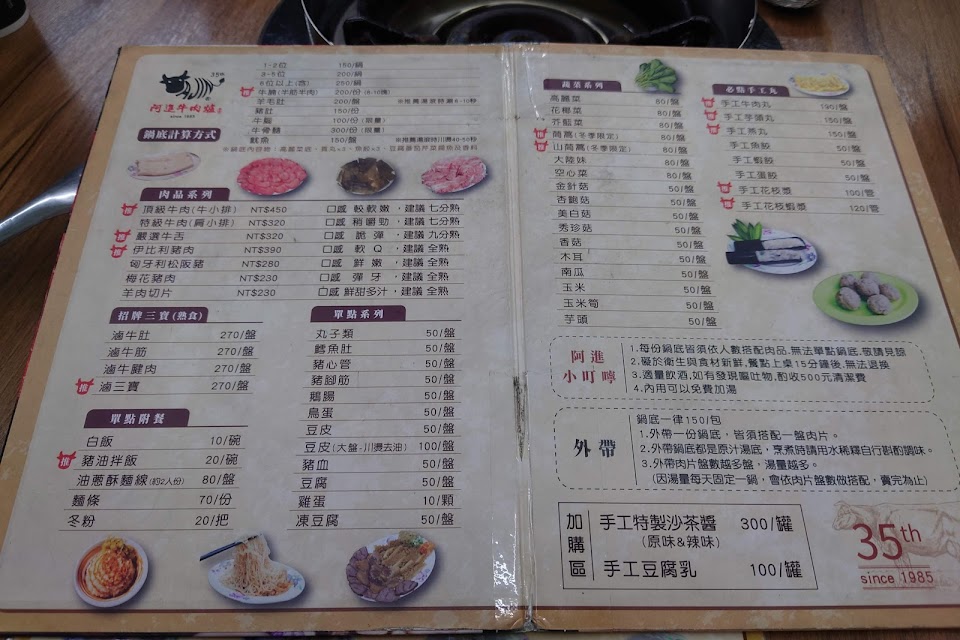 35th
阿進牛肉爐
since 1985
1-2位 150/鍋
3-5位 200/鍋
6位以上(含) 250/鍋
推 牛腩(半筋半肉) 200/份
羊毛肚 200/盤
豬肚 150/份
牛髓 100/份 (限量)
牛骨髓 300/份 (限量)
魷魚 150/盤
鍋底計算方式
肉品系列
推 頂級牛肉(牛小排) NT$450 口感 較軟嫩,建議 七分熟
特級牛肉(肩小排) NT$320 口感 稍嚼勁,建議 七分熟
推 嚴選牛舌 NT$320 口感 脆彈,建議 九分熟
推 伊比利豬肉 NT$390 口感 軟Q,建議 全熟
匈牙利松阪豬 NT$280 口感 鮮嫩,建議 全熟
梅花豬肉 NT$230 口感 彈牙,建議 全熟
羊肉切片 NT$230 口感 鮮甜多汁,建議 全熟
招牌三寶(熟食)
滷牛肚 270/盤
滷牛筋 270/盤
滷牛腱肉 270/盤
推 滷三寶 270/盤
單點附餐
白飯 10/碗
推 豬油拌飯 20/碗
油蔥酥麵線(約2人份) 80/盤
麵條 70/份
冬粉 20/把
單點系列
丸子類 50/盤
鱈魚肚 50/盤
豬心管 50/盤
豬腳筋 50/盤
鴨腸 50/盤
鳥蛋 50/盤
豆皮 50/盤
豆皮(大盤.川燙去油) 100/盤
豬血 50/盤
豆腐 50/盤
雞蛋 10/顆
凍豆腐 50/盤
蔬菜系列
高麗菜 80/盤
花椰菜 80/盤
芥藍菜 80/盤
推 茼蒿(冬季限定) 80/盤
推 山茼蒿(冬季限定) 80/盤
大陸妹 80/盤
空心菜 80/盤
金針菇 50/盤
杏鮑菇 50/盤
美白菇 50/盤
秀珍菇 50/盤
香菇 50/盤
木耳 50/盤
南瓜 50/盤
玉米 50/盤
玉米筍 50/盤
芋頭 50/盤
必點手工丸
推 手工牛肉丸 190/盤
推 手工芋頭丸 150/盤
推 手工燕丸 150/盤
手工魚餃 50/盤
手工蝦餃 50/盤
手工蛋餃 50/盤
推 手工花枝漿 100/管
推 手工花枝蝦漿 120/管
阿進小叮嚀
1.每份鍋底皆須依人數搭配肉品,無法單點鍋底,敬請見諒
2.礙於衛生與食材新鮮,餐點上桌15分鐘後,無法退換
3.適量飲酒,如有發現嘔吐物,酌收500元清潔費
4.內用可以免費加湯
外帶
鍋底一律150/包
1.外帶一份鍋底,皆須搭配一盤肉片。
2.外帶鍋底都是原汁湯底,烹煮時請用水稀釋自行斟酌調味。
3.外帶肉片盤數越多盤,湯量越多。
(因湯量每天固定一鍋,會依肉片盤數做搭配,賣完為止)
加購區
手工特製沙茶醬 300/罐
(原味&辣味)
手工豆腐乳 100/罐
35th
since 1985